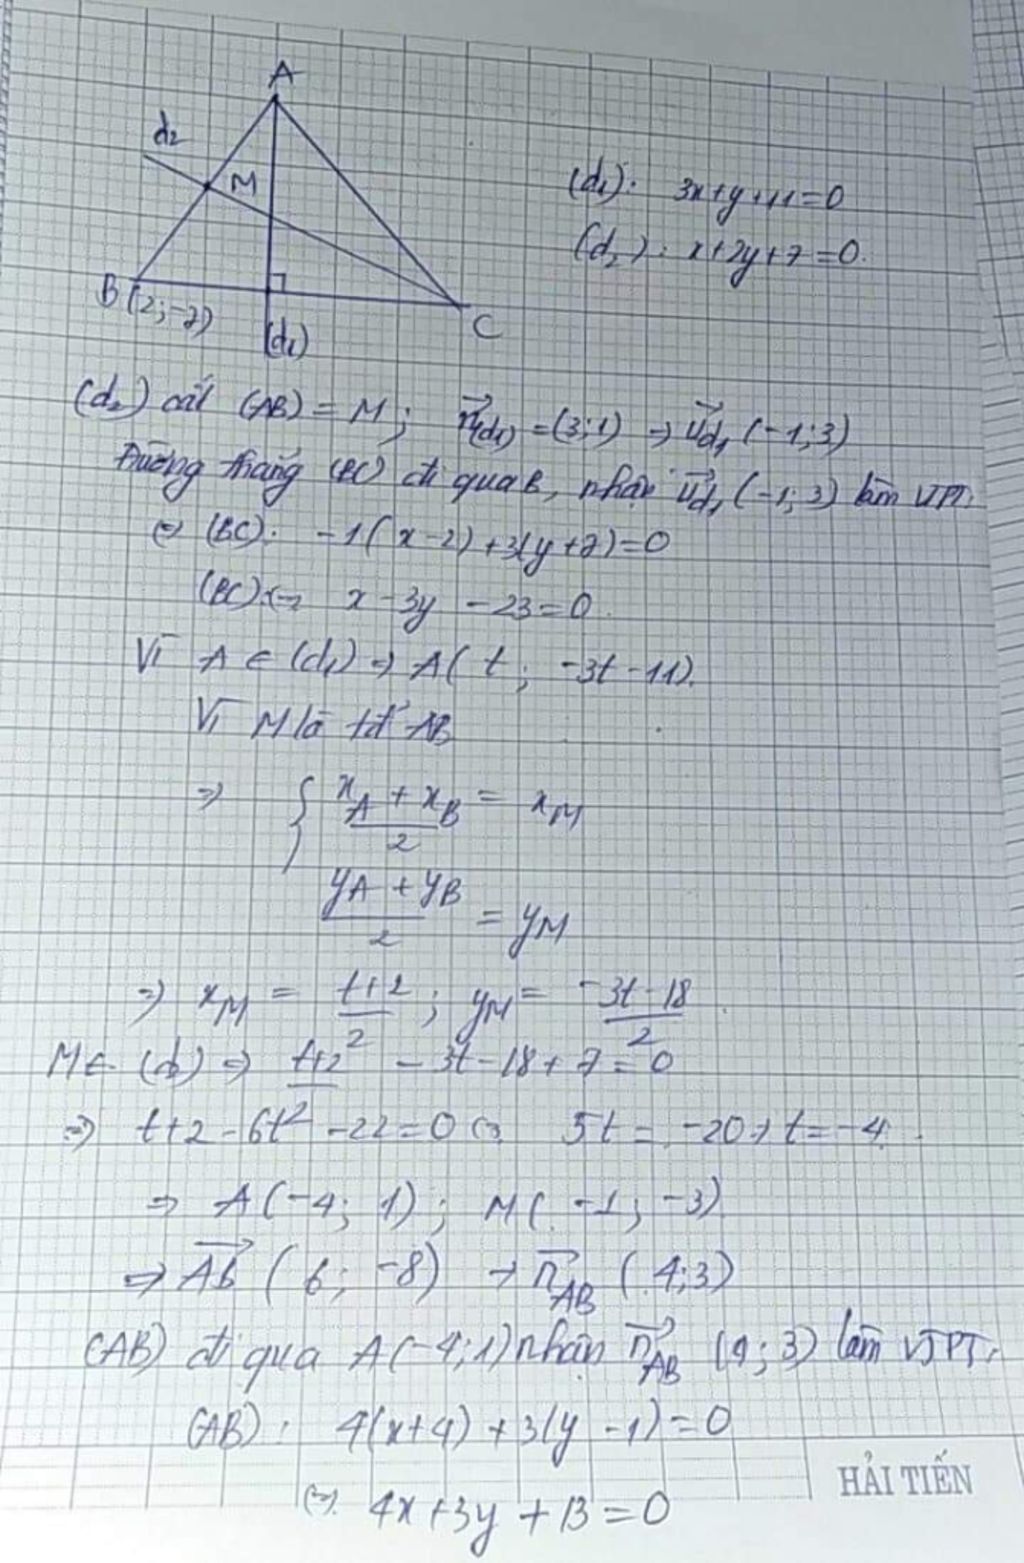 A
d₂
M
B(2;-7)
(d₁)
C
(d₁): 3x+y+11=0
(d₂): x+2y+7=0.
(d₂) cắt (AB) = M; n⃗(d₁) = (3;1) → u⃗d₁ (-1;3)
Đường thẳng (BC) đi qua B, nhận u⃗d₁ (-1;3) làm VTPT.
⇔ (BC): -1(x-2)+3(y+7)=0
(BC) ⇔ x-3y-23=0.
Vì A ∈ (d₁) → A(t; -3t-11).
Vì M là tđ AB
⇒ { (x_A + x_B)/2 = x_M
(y_A + y_B)/2 = y_M
⇒ x_M = (t+2)/2; y_M = (-3t-18)/2
M ∈ (d₂) ⇒ (t+2)/2 - 3t-18+7=0
⇒ t+2-6t-22=0 ⇔ 5t=-20 → t=-4.
⇒ A(-4; 1); M(-1; -3)
⇒ AB⃗ (6; -8) → n⃗AB (4;3)
(AB) đi qua A(-4;1) nhận n⃗AB (4;3) làm VTPT.
(AB): 4(x+4)+3(y-1)=0
(⇔). 4x+3y+13=0
HẢI TIẾN